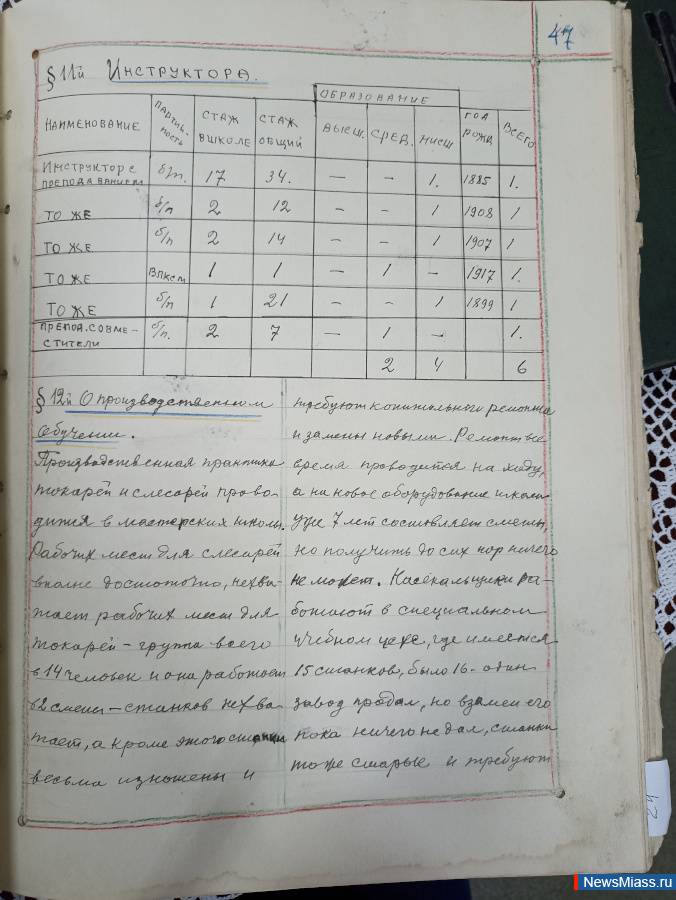 47
§ 11й Инструктора.
НАИМЕНОВАНИЕ ПАРТИЙ-НОСТЬ СТАЖ В ШКОЛЕ СТАЖ ОБЩИЙ ОБРАЗОВАНИЕ ВЫСШ. СРЕД. НИСШ ГОД РОЖД ВСЕГО
Инструктор с преподаванием б/п. 17 34. — — 1. 1885 1.
ТО ЖЕ б/п 2 12 – – 1 1908 1
ТО ЖЕ б/п 2 14 – – 1 1907 1
ТО ЖЕ Влксм 1 1 — 1 – 1917 1.
ТО ЖЕ б/п 1 21 – – 1 1899 1
ПРЕПОД. СОВМЕ-СТИТЕЛИ б/п. 2 7 — 1 – 1.
2 4 6
§ 12й О производственном
обучении.
Производственная практика
токарей и слесарей прово-
дится в мастерских школы.
Рабочих мест для слесарей
вполне достаточно, нехва-
тает рабочих мест для
токарей – группа всего
в 14 человек и она работает
в 2 смены – станков нехва-
тает, а кроме этого станки
весьма изношены и
требуют капитального ремонта
и замены новыми. Ремонт все
время проводится на ходу,
а на новое оборудование школа
уже 7 лет составляет сметы,
но получить до сих пор ничего
не может. Насекальщики ра-
ботают в специальном
учебном цехе, где имеется
15 станков, было 16 – один
завод продал, но взамен его
пока ничего не дал, станки
тоже старые и требуют
24
NewsMiass.ru